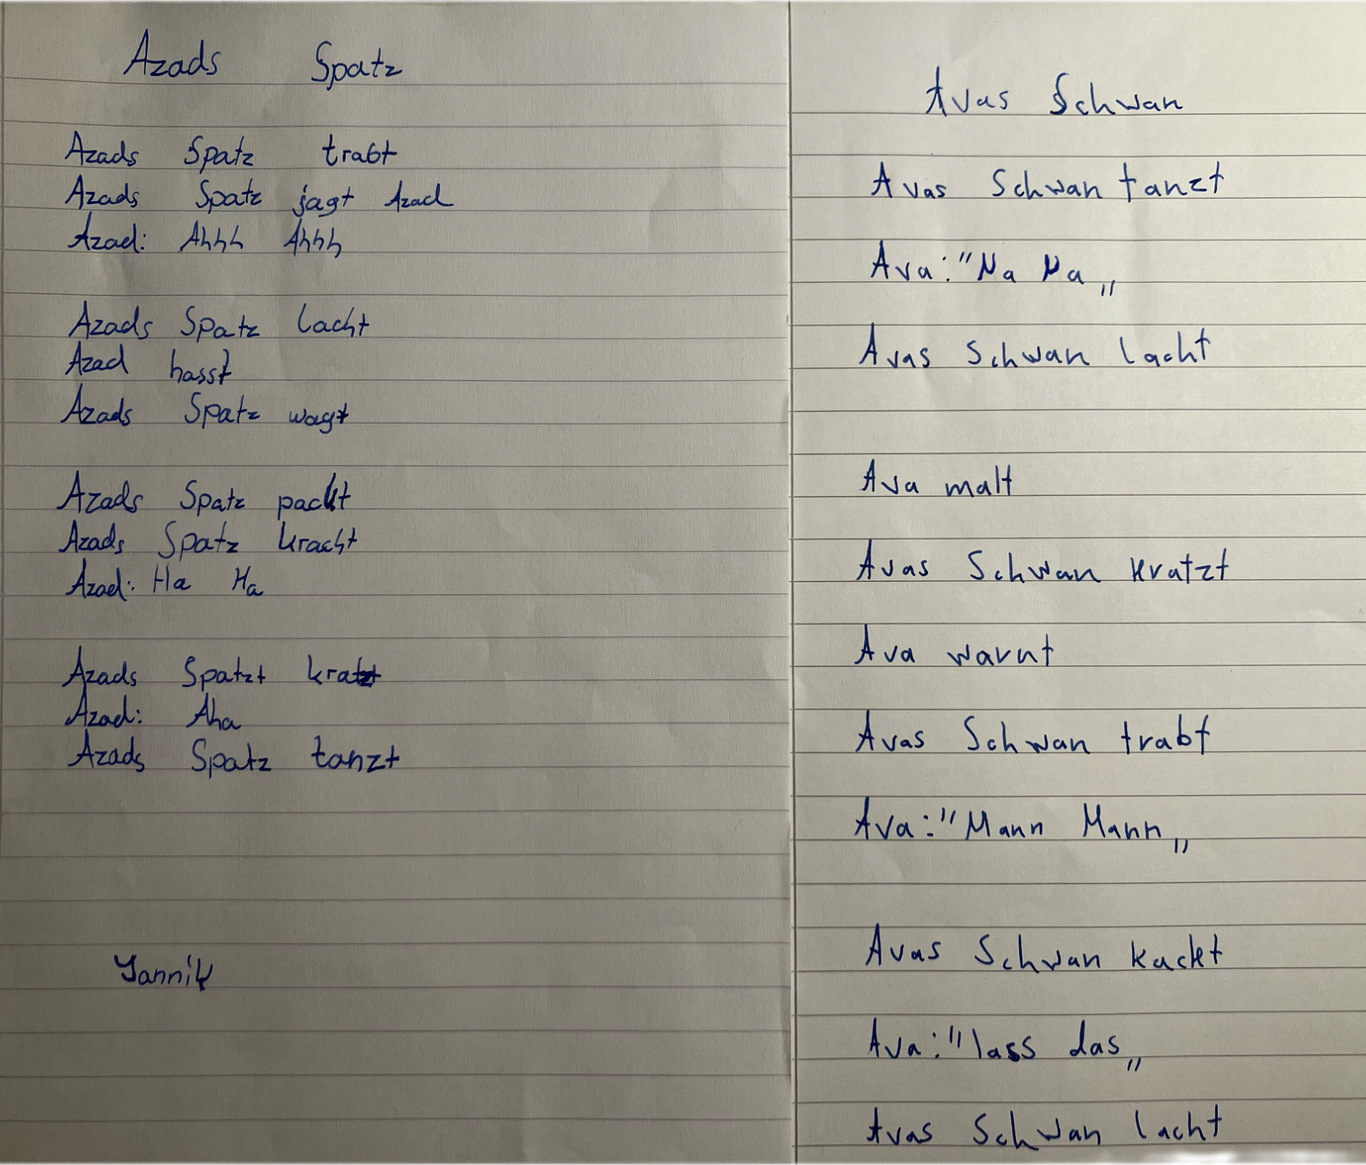 Azads Spatz
Azads Spatz trabt
Azads Spatz jagt Azad
Azad: Ahhh Ahhh
Azads Spatz lacht
Azad hasst
Azads Spatz wagt
Azads Spatz packt
Azads Spatz kracht
Azad: Ha Ha
Azads Spatzt kratzt
Azad: Aha
Azads Spatz tanzt
Yannik
Avas Schwan
Avas Schwan tanzt
Ava:"Na Na„
Avas Schwan lacht
Ava malt
Avas Schwan kratzt
Ava warnt
Avas Schwan trabt
Ava:"Mann Mann„
Avas Schwan kackt
Ava:"lass das„
Avas Schwan lacht